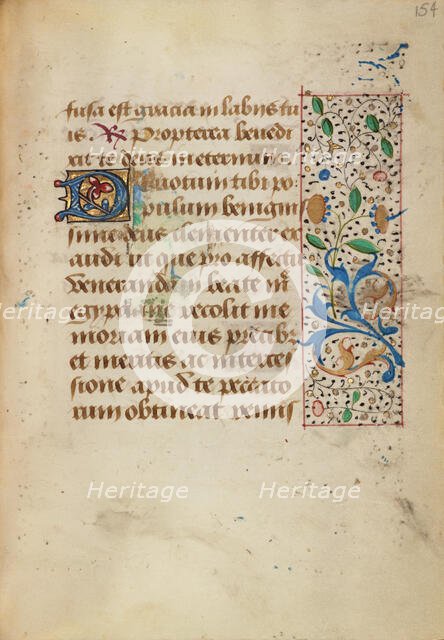 154
fusa est gracia in labijs tu
is. R Propterea benedi
xit te deus in eternum
Deuotum tibi po
pulum benignis
sime deus clementer ex
audi ut qui pro affectu
venerandam beate m
egyptiace recolit me
moriam eius precibus
et meritis ac interces
sione apud te peccato
rum obtineat remis
Heritage
Heritage
Heritage
Heritage
Heritage
Heritage
Heritage
Heritage